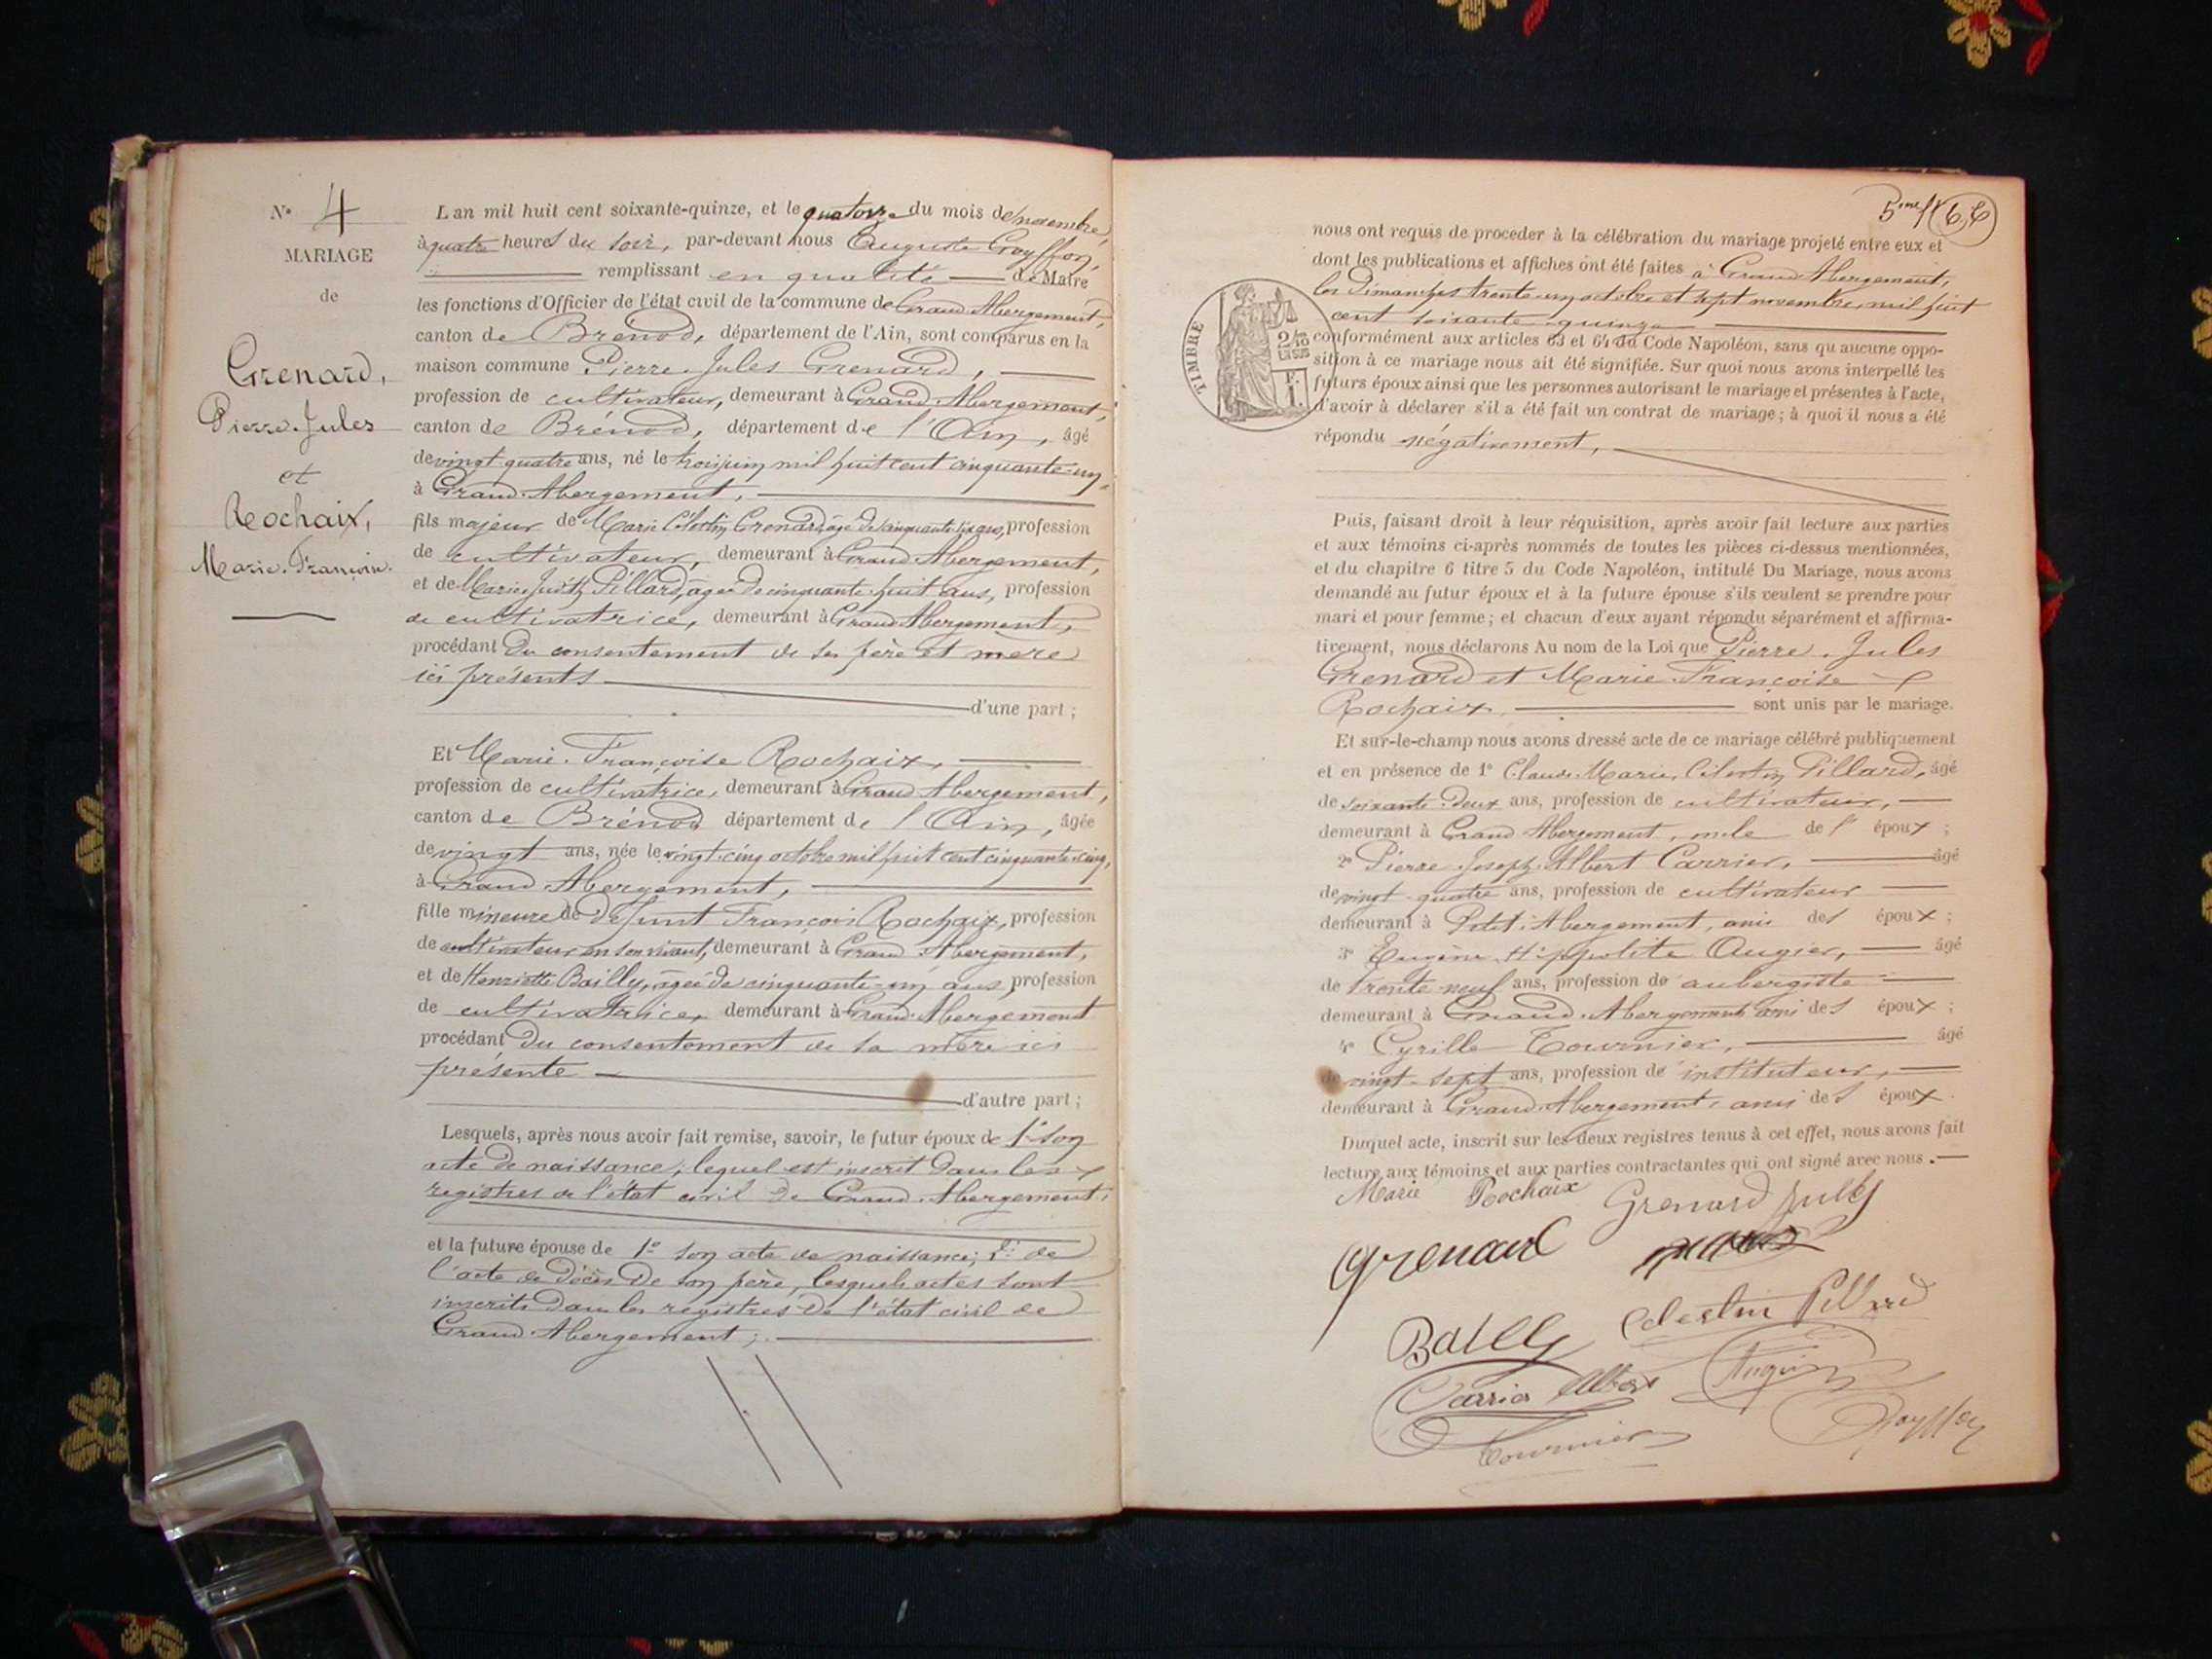 N° 4
MARIAGE
de
Grenard,
Pierre Jules
et
Rochaix,
Marie Françoise.
L an mil huit cent soixante-quinze, et le quatorze du mois de novembre,
à quatre heures du soir, par-devant nous Auguste Goyffon,
remplissant en qualité de Maire
les fonctions d'Officier de l'état civil de la commune de Grand Abergement,
canton de Brénod, département de l'Ain, sont comparus en la
maison commune Pierre Jules Grenard,
profession de cultivateur, demeurant à Grand Abergement,
canton de Brénod, département de l'Ain, âgé
de vingt quatre ans, né le trois juin mil huit cent cinquante-un,
à Grand Abergement,
fils majeur de Marie Célestin Grenard, âgé de cinquante six ans, profession
de cultivateur, demeurant à Grand Abergement,
et de Marie Judith Pillard, âgée de cinquante huit ans, profession
de cultivatrice, demeurant à Grand Abergement,
procédant du consentement de ses père et mère
ici présents
d'une part ;
Et Marie Françoise Rochaix,
profession de cultivatrice, demeurant à Grand Abergement,
canton de Brénod département de l'Ain, âgée
de vingt ans, née le vingt-cinq octobre mil huit cent cinquante-cinq,
à Grand Abergement,
fille mineure de défunt François Rochaix, profession
de cultivateur en son vivant, demeurant à Grand Abergement,
et de Henriette Bailly, âgée de cinquante-un ans, profession
de cultivatrice, demeurant à Grand Abergement
procédant du consentement de sa mère ici
présente
d'autre part ;
Lesquels, après nous avoir fait remise, savoir, le futur époux de 1° son
acte de naissance, lequel est inscrit dans les
registres de l'état civil de Grand Abergement,
et la future épouse de 1° son acte de naissance; 2° de
l'acte de décès de son père, lesquels actes sont
inscrits dans les registres de l'état civil de
Grand Abergement ;
5me f
nous ont requis de proceder à la célébration du mariage projeté entre eux et
dont les publications et affiches ont été faites à Grand Abergement,
les dimanches trente-un octobre et sept novembre, mil huit
cent soixante-quinze
TIMBRE
2/10
EN SUS
F.
1.
conformément aux articles 63 et 64 du Code Napoléon, sans qu aucune oppo-
sition à ce mariage nous ait été signifiée. Sur quoi nous avons interpellé les
futurs époux ainsi que les personnes autorisant le mariage et présentes à l'acte,
d'avoir à déclarer s'il a été fait un contrat de mariage ; à quoi il nous a été
répondu négativement,
Puis, faisant droit à leur réquisition, après avoir fait lecture aux parties
et aux témoins ci-après nommés de toutes les pièces ci-dessus mentionnées,
et du chapitre 6 titre 5 du Code Napoléon, intitulé Du Mariage, nous avons
demandé au futur époux et à la future épouse s'ils veulent se prendre pour
mari et pour femme ; et chacun d'eux ayant répondu séparément et affirma-
tivement, nous déclarons Au nom de la Loi que Pierre Jules
Grenard et Marie Françoise
Rochaix sont unis par le mariage.
Et sur-le-champ nous avons dressé acte de ce mariage célébré publiquement
et en présence de 1° Claude Marie Célestin Pillard, âgé
de soixante-deux ans, profession de cultivateur,
demeurant à Grand Abergement, oncle de l' époux ;
2° Pierre Joseph Albert Carrier, âgé
de vingt-quatre ans, profession de cultivateur
demeurant à Petit-Abergement, ami des époux ;
3° Eugène Hippolite Augier, âgé
de trente-neuf ans, profession de aubergiste
demeurant à Grand Abergement ami des époux ;
4° Cyrille Tournier, âgé
de vingt-sept ans, profession de instituteur,
demeurant à Grand Abergement, ami des époux.
Duquel acte, inscrit sur les deux registres tenus à cet effet, nous avons fait
lecture aux témoins et aux parties contractantes qui ont signé avec nous.
Marie Rochaix Grenard Jules
Grenard
Bailly Celestin Pillard
Carrier Albert Augier
Tournier Goyffon